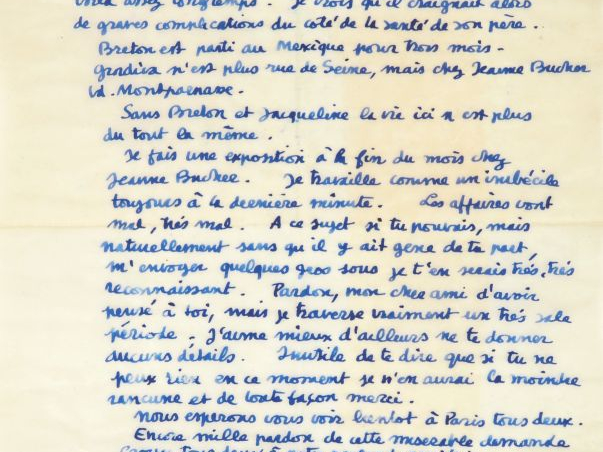 assez longtemps. Je crois qu'il craignait alors
de graves complications du coté de la santé de son père.
Breton est parti au Mexique pour trois mois -
Gradiva n'est plus rue de Seine, mais chez Jeanne Bucher
Bd. Montparnasse.
Sans Breton et Jacqueline la vie ici n'est plus
du tout la même.
Je fais une exposition à la fin du mois chez
Jeanne Bucher. Je travaille comme un imbécile
toujours à la dernière minute. Les affaires vont
mal, très mal. A ce sujet si tu pouvais, mais
naturellement sans qu'il y ait gene de ta part,
m'envoyer quelques gros sous je t'en serais très, très
reconnaissant. Pardon, mon cher ami d'avoir
pensé à toi, mais je traverse vraiment un très sale
période ; j'aime mieux d'ailleurs ne te donner
aucuns détails. Inutile de te dire que si tu ne
peux rien en ce moment je n'en aurai la moindre
rancune et de toute façon merci.
Nous esperons vous voir bientot à Paris tous deux.
Encore mille pardon de cette miserable demande